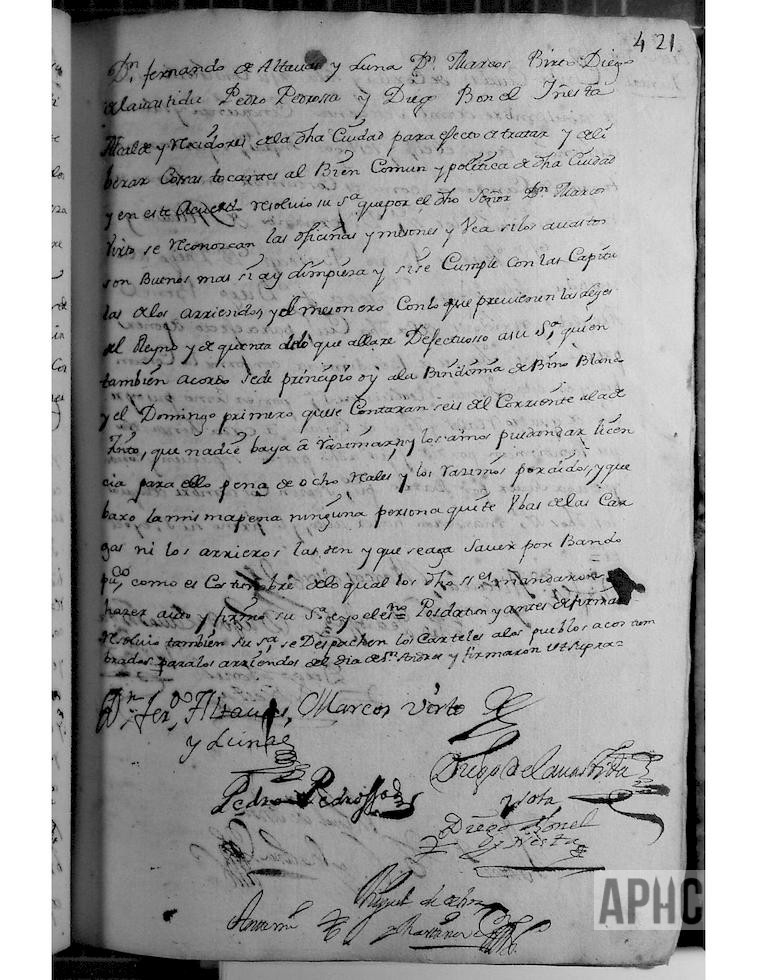 421
Dn. fernando de Altauas y Luna Dn Marcos Birto Diego
delauastida Pedro Pedrossa y Diego Bonel Iñesta
Alcalde y Rexidores dela dha Ciudad para efecto de tratar y deli
berar Cossas tocantes al Bien Comun y política de dha Ciudad
y en este Acuerdo resoluio su sa. que por el dho Señor Dn Marcos
Virto se reconozcan las oficinas y mesones y Vea si los auastos
son Buenos mas si ay limpieza y si se Cumple con las Capitu
las de los arriendos y el mesonero Con lo que preuienen las leyes
del Reyno y de quenta delo que allare Defectuosso a su Sa. quien
tambien acordo se de principio oy ala Bindimia de Bino Blanco
y el Domingo primero que se Contaran seis del Corriente ala de
tinto, que nadie baya a razimar, y los amos puedan dar licen
cia para ello pena de ocho reales y los razimos perdidos, y que
baxo la misma pena ninguna persona quite Ubas de las Car
gas ni los arrieros las den y que se aga Sauer por Bando
puco, como es Costumbre delo qual los dhos ss.es mandaron
hazer auto y firmo su Sa. e yo el esno Posdatun y antes de firmar
resoluio tambien su sa, se Despachen los Carteles a los pueblos acostum
brados para los arriendos del dia de Sn Andres y firmaron Ut supra=
Dn. fero, Altauas, Marcos Virto
y Luna
Diego Delauastida
Pedro Pedrossa
y sota
Diego Bonel
Iñesta
Miguel de
Antemi
Martinez
APHC